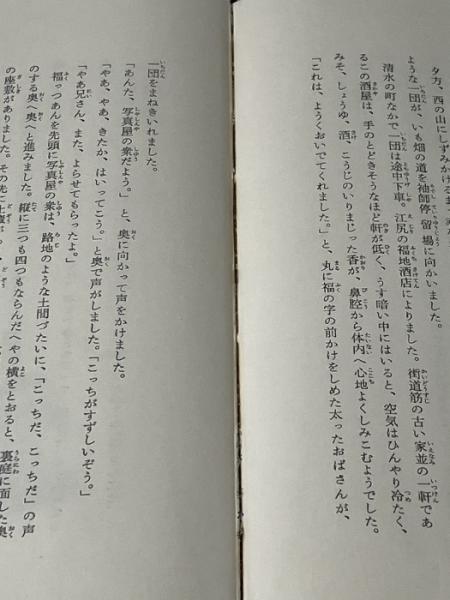 夕方、西の山にしずみかけるま
ような一団が、いも畑の道を袖師停留場に向かいました。
清水の町なかで一団は途中下車。江尻の福地酒店によりました。街道筋の古い家並の一軒であ
るこの酒屋は、手のとどきそうなほど軒が低く、うす暗い中にはいると、空気はひんやり冷たく、
みそ、しょうゆ、酒、こうじのいりまじった香が、鼻腔から体内へ心地よくしみこむようでした。
「これは、ようくおいでてくれました。」と、丸に福の字の前かけをしめた太ったおばさんが、
一団をまねきいれました。
「あんた、写真屋の衆だよう。」と、奥に向かって声をかけました。
「やあ、やあ、きたか、はいってこう。」と奥で声がしました。「こっちがすずしいぞう。」
「やあ兄さん、また、よらせてもらったよ。」
福っつあんを先頭に写真屋の衆は、路地のような土間づたいに、「こっちだ、こっちだ」の声
のする奥へ奥へと進みました。縦に三つも四つもならんだへやの横をとおると、裏庭に面した奥
の座敷がありました。その先に土蔵